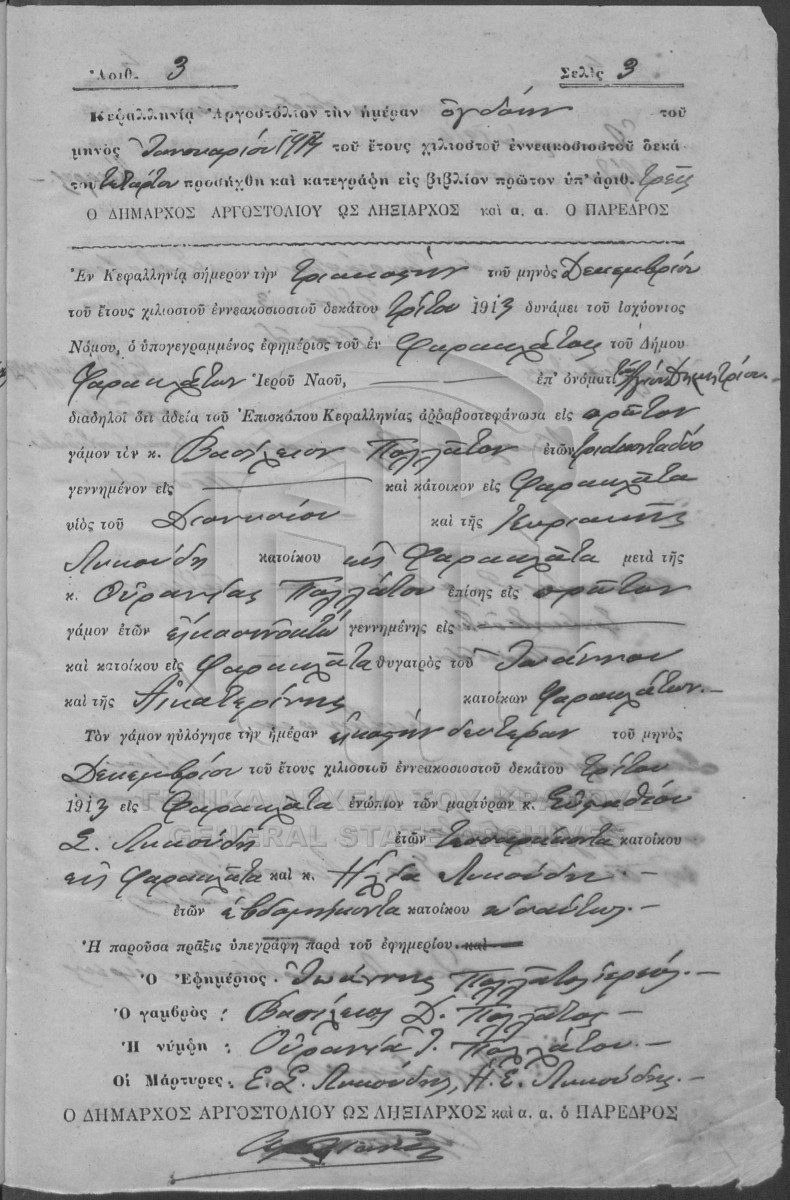 Ἀριθ. 3 Σελὶς 3
Κεφαλληνίᾳ Ἀργοστόλιον τὴν ἡμέραν ὀγδόην τοῦ
μηνὸς Ἰανουαρίου 1914 τοῦ ἔτους χιλιοστοῦ ἐννεακοσιοστοῦ δεκά
του τετάρτου προσήχθη καὶ κατεγράφη εἰς βιβλίον πρῶτον ὑπ' ἀριθ. τρεῖς
Ο ΔΗΜΑΡΧΟΣ ΑΡΓΟΣΤΟΛΙΟΥ ΩΣ ΛΗΞΙΑΡΧΟΣ καὶ α. α. Ο ΠΑΡΕΔΡΟΣ
Ἐν Κεφαλληνίᾳ σήμερον τὴν τριακοστὴν τοῦ μηνὸς Δεκεμβρίου
τοῦ ἔτους χιλιοστοῦ ἐννεακοσιοστοῦ δεκάτου τρίτου 1913 δυνάμει τοῦ ἰσχύοντος
Νόμου, ὁ ὑπογεγραμμένος ἐφημέριος τοῦ ἐν Φαρακλάτοις τοῦ Δήμου
Φαρακλάτων Ἱεροῦ Ναοῦ, ἐπ' ὀνόματι τοῦ Ἁγίου Δημητρίου.
διαδηλοῖ ὅτι ἀδείᾳ τοῦ Ἐπισκόπου Κεφαλληνίας ἀῤῥαβοστεφάνωσα εἰς πρῶτον
γάμον τὸν κ. Βασίλειον Πολλάτον ἐτῶν τριάκοντα δύο
γεννημένον εἰς καὶ κάτοικον εἰς Φαρακλάτα
υἱὸς τοῦ Διονυσίου καὶ τῆς Κυριακῆς
Λυκούδη κατοίκου εἰς Φαρακλάτα μετὰ τῆς
κ. Οὐρανίας Πολλάτου ἐπίσης εἰς πρῶτον
γάμον ἐτῶν εἰκοσιοκτώ γεννημένης εἰς
καὶ κατοίκου εἰς Φαρακλάτα θυγατρὸς τοῦ Ἰωάννου
καὶ τῆς Αἰκατερίνης κατοίκων Φαρακλάτων.
Τὸν γάμον ηὐλόγησε τὴν ἡμέραν εἰκοστὴν δευτέραν τοῦ μηνὸς
Δεκεμβρίου τοῦ ἔτους χιλιοστοῦ ἐννεακοσιοστοῦ δεκάτου τρίτου
1913 εἰς Φαρακλάτα ἐνώπιον τῶν μαρτύρων κ. Εὐσταθίου
Σ. Λυκούδη ἐτῶν τεσσαράκοντα κατοίκου
εἰς Φαρακλάτα καὶ κ. Ἠλία Λυκούδη.
ἐτῶν ἑβδομήκοντα κατοίκου ὡσαύτως.
Ἡ παροῦσα πρᾶξις ὑπεγράφη παρὰ τοῦ ἐφημερίου καὶ
Ὁ Ἐφημέριος. Ἰωάννης Πολλάτος ἱερεύς.
Ὁ γαμβρὸς : Βασίλειος Δ. Πολλάτος.
Ἡ νύμφη : Οὐρανία Ἰ. Πολλάτου.
Οἱ Μάρτυρες. Ε. Σ. Λυκούδης, Η. Ε. Λυκούδης.
Ο ΔΗΜΑΡΧΟΣ ΑΡΓΟΣΤΟΛΙΟΥ ΩΣ ΛΗΞΙΑΡΧΟΣ καὶ α. α. ὁ ΠΑΡΕΔΡΟΣ
ΓΕΝΙΚΑ ΑΡΧΕΙΑ ΤΟΥ ΚΡΑΤΟΥΣ
GENERAL STATE ARCHIVES